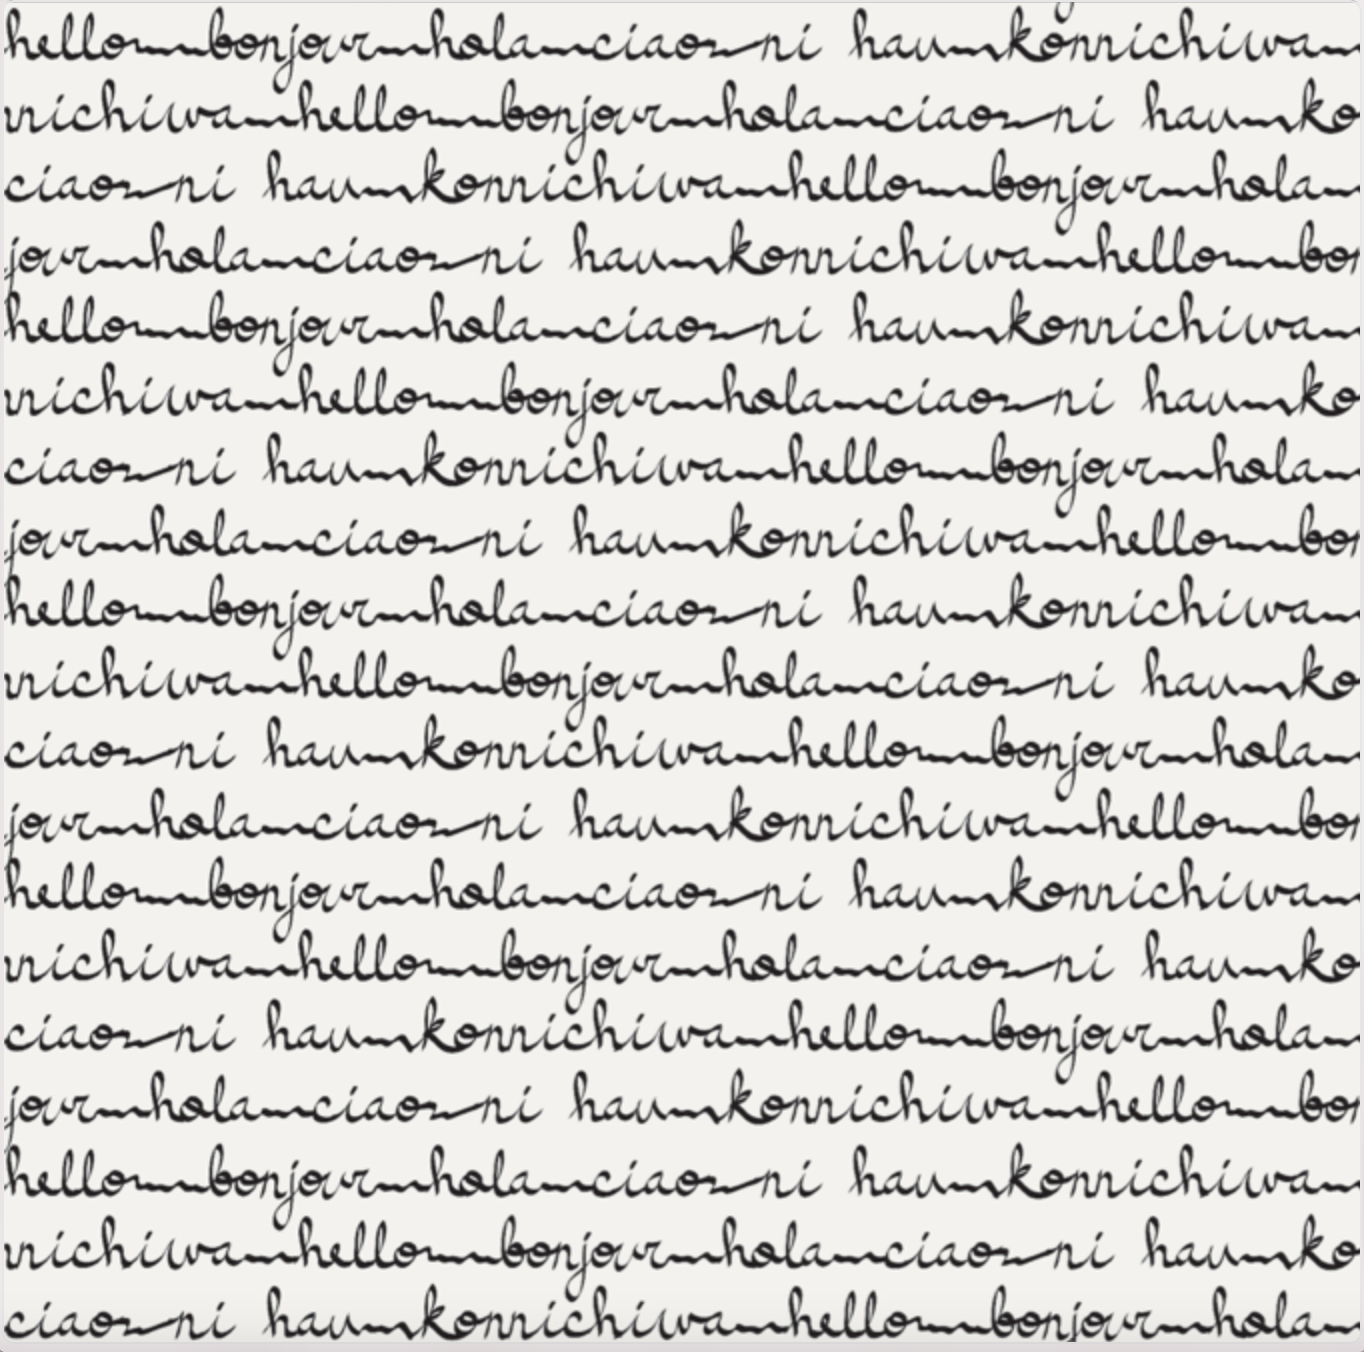 hello bonjour hola ciao ni hau konnichiwa
nnichiwa hello bonjour hola ciao ni hau ko
ciao ni hau konnichiwa hello bonjour hola
jour hola ciao ni hau konnichiwa hello bon
hello bonjour hola ciao ni hau konnichiwa
nnichiwa hello bonjour hola ciao ni hau ko
ciao ni hau konnichiwa hello bonjour hola
jour hola ciao ni hau konnichiwa hello bon
hello bonjour hola ciao ni hau konnichiwa
nnichiwa hello bonjour hola ciao ni hau ko
ciao ni hau konnichiwa hello bonjour hola
jour hola ciao ni hau konnichiwa hello bon
hello bonjour hola ciao ni hau konnichiwa
nnichiwa hello bonjour hola ciao ni hau ko
ciao ni hau konnichiwa hello bonjour hola
jour hola ciao ni hau konnichiwa hello bon
hello bonjour hola ciao ni hau konnichiwa
nnichiwa hello bonjour hola ciao ni hau ko
ciao ni hau konnichiwa hello bonjour hola